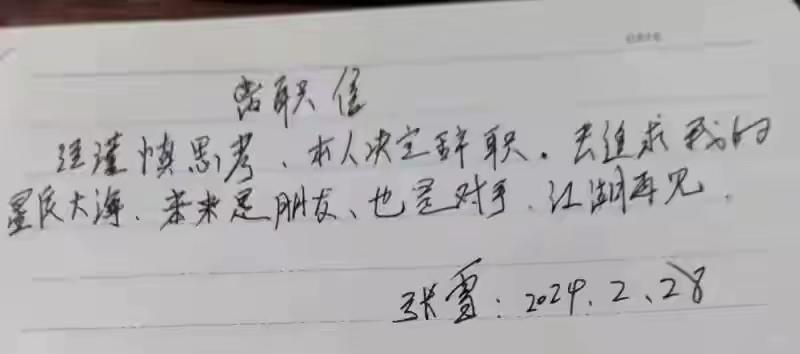 离职信
经谨慎思考、本人决定辞职。去追求我的
星辰大海、未来是朋友、也是对手、江湖再见.
张雪：2024.2、28